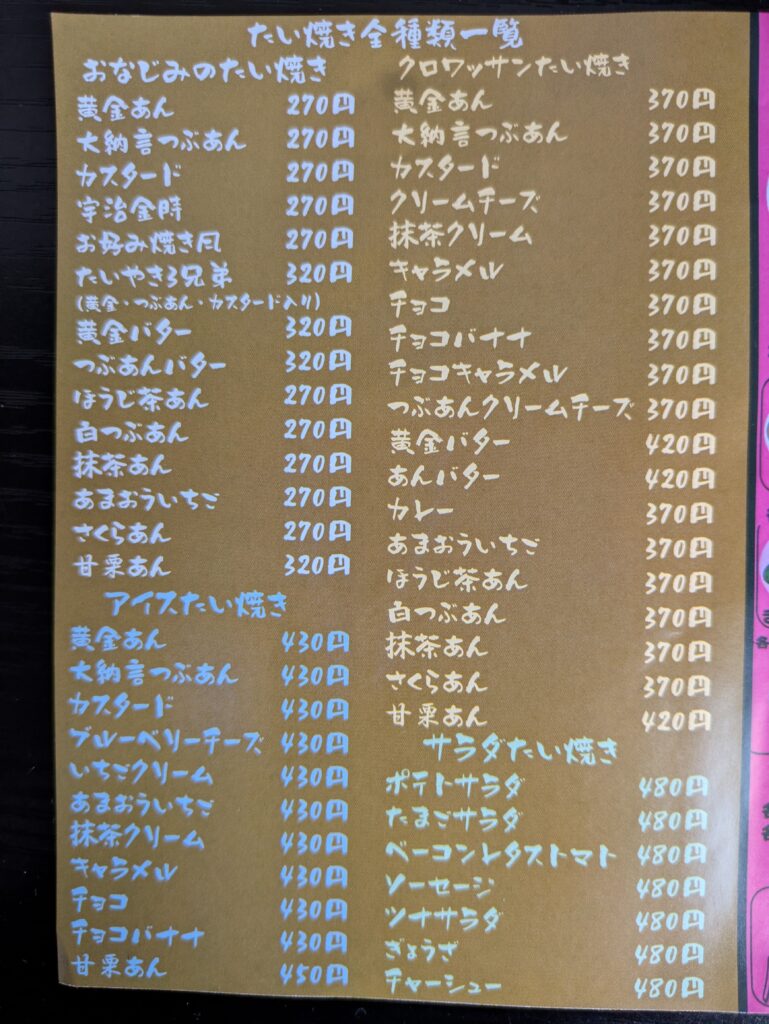 たい焼き全種類一覧
おなじみのたい焼き
黄金あん 270円
大納言つぶあん 270円
カスタード 270円
宇治金時 270円
お好み焼き風 270円
たいやき3兄弟 320円
(黄金・つぶあん・カスタード入り)
黄金バター 320円
つぶあんバター 320円
ほうじ茶あん 270円
白つぶあん 270円
抹茶あん 270円
あまおういちご 270円
さくらあん 270円
甘栗あん 320円
アイスたい焼き
黄金あん 430円
大納言つぶあん 430円
カスタード 430円
ブルーベリーチーズ 430円
いちごクリーム 430円
あまおういちご 430円
抹茶クリーム 430円
キャラメル 430円
チョコ 430円
チョコバナナ 430円
甘栗あん 450円
クロワッサンたい焼き
黄金あん 370円
大納言つぶあん 370円
カスタード 370円
クリームチーズ 370円
抹茶クリーム 370円
キャラメル 370円
チョコ 370円
チョコバナナ 370円
チョコキャラメル 370円
つぶあんクリームチーズ 370円
黄金バター 420円
あんバター 420円
カレー 370円
あまおういちご 370円
ほうじ茶あん 370円
白つぶあん 370円
抹茶あん 370円
さくらあん 370円
甘栗あん 420円
サラダたい焼き
ポテトサラダ 480円
たまごサラダ 480円
ベーコンレタストマト 480円
ソーセージ 480円
ツナサラダ 480円
ぎょうざ 480円
チャーシュー 480円